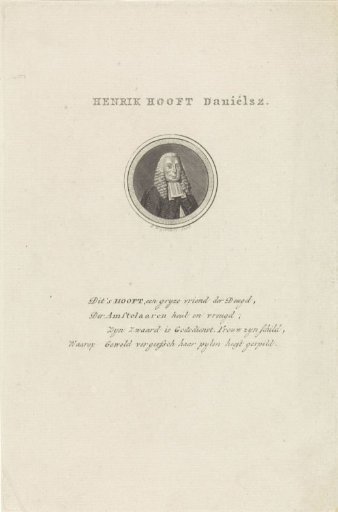 HENRIK HOOFT Daniëlsz.
Dit's HOOFT, een gryze vriend der Deugd,
Der Amstelaaren heul en vreugd;
Zyn Zwaard is Godsdienst, Trouw zyn schild,
Waarop Geweld vergeefsch haar pylen heeft gespild.